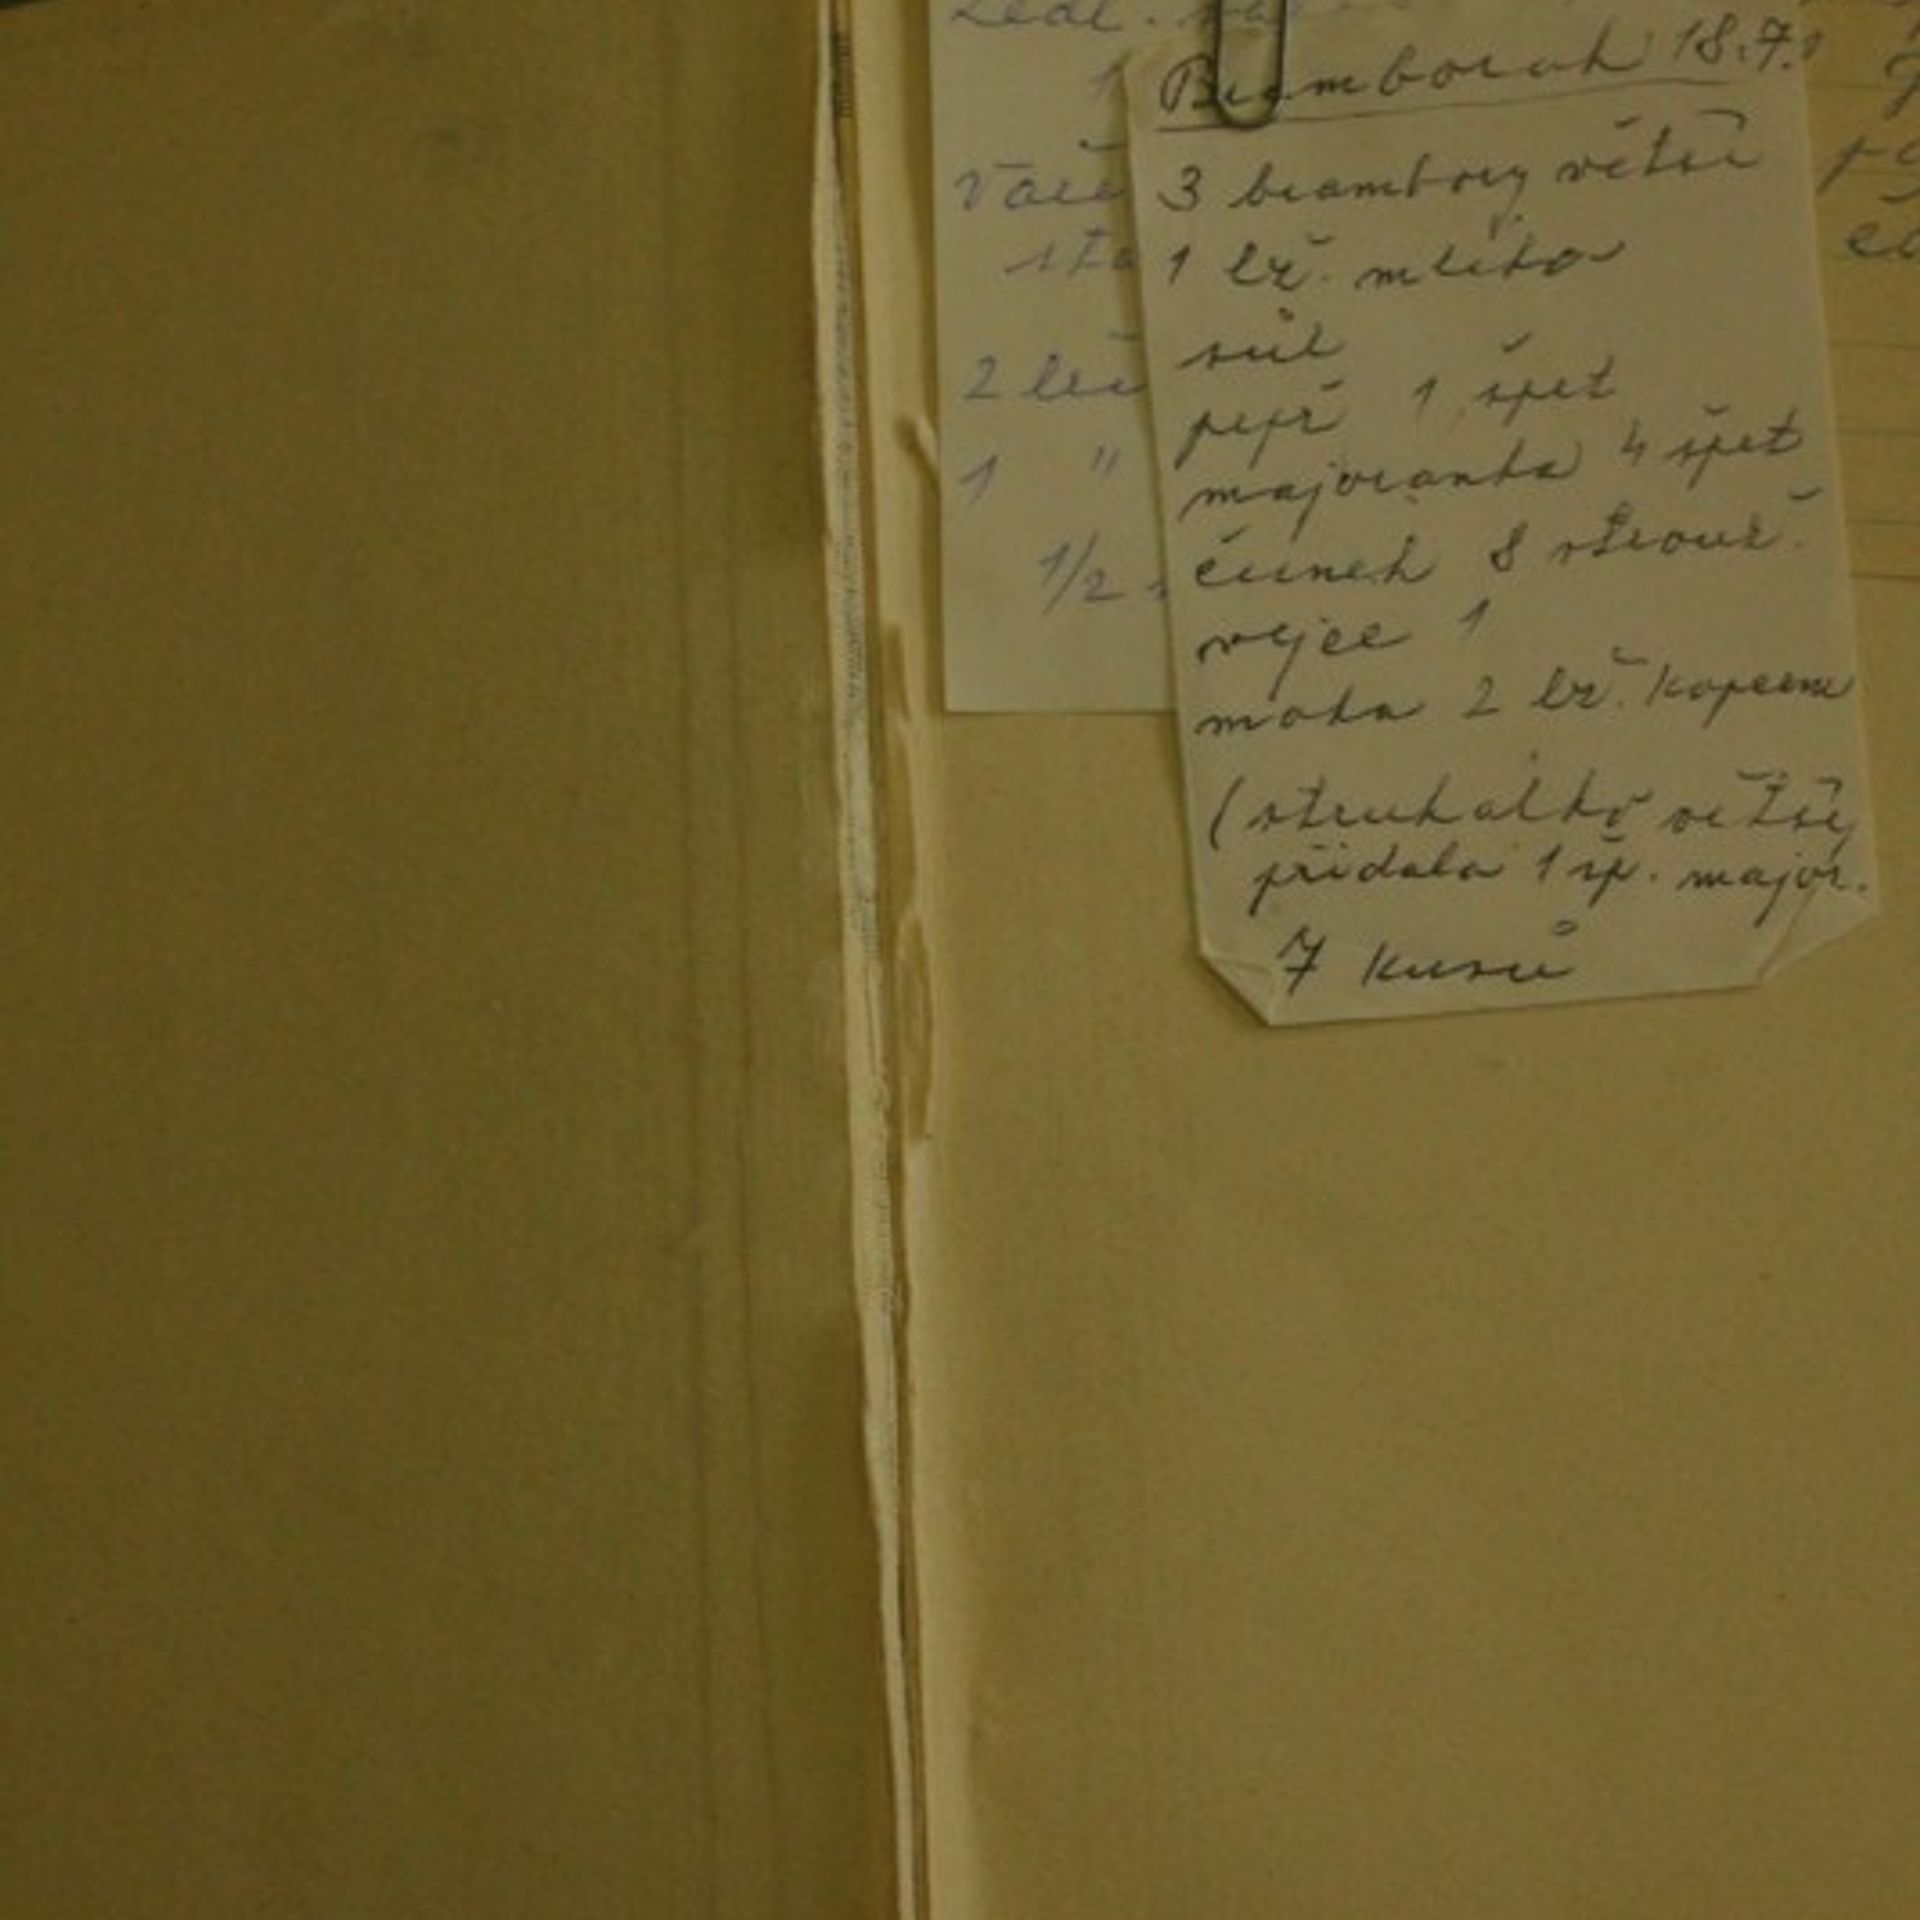 Bramborák 18.7.
3 brambory větší
1 lž. mléko
sůl
pepř 1 špet
majoranka 4 špet
česnek 8 strouž.
vejce 1
mouka 2 lž. kopcem
(struhátko větší
přidala 1 šp. major.
7 kusů
2
1 "
1/2